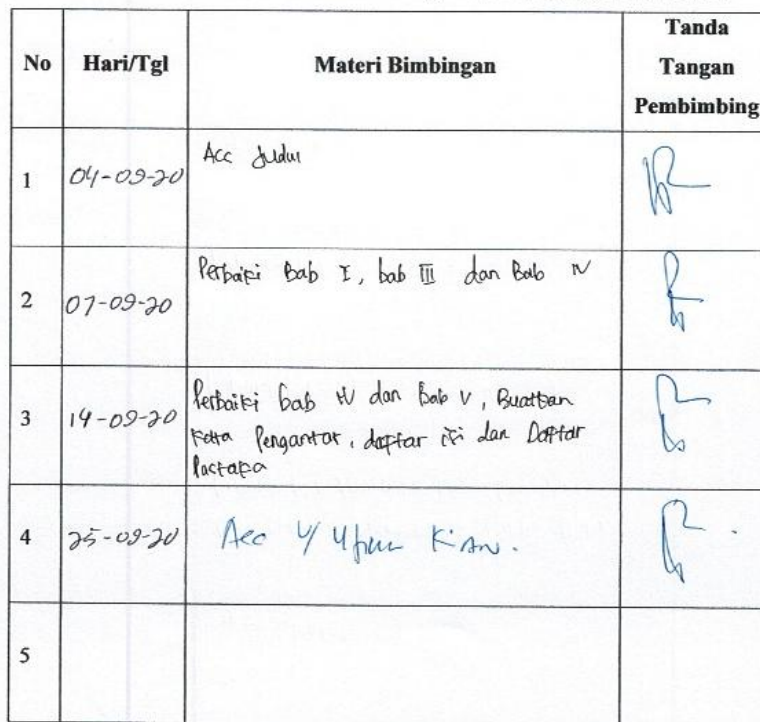 No Hari/Tgl Materi Bimbingan Tanda Tangan Pembimbing
1 04-09-20 Acc Judul
2 07-09-20 Perbaiki Bab I, bab III dan Bab IV
3 14-09-20 Perbaiki bab IV dan Bab V, Buatkan
Kata Pengantar, daftar isi dan Daftar
Pustaka
4 25-09-20 Acc u/ Ujian
5